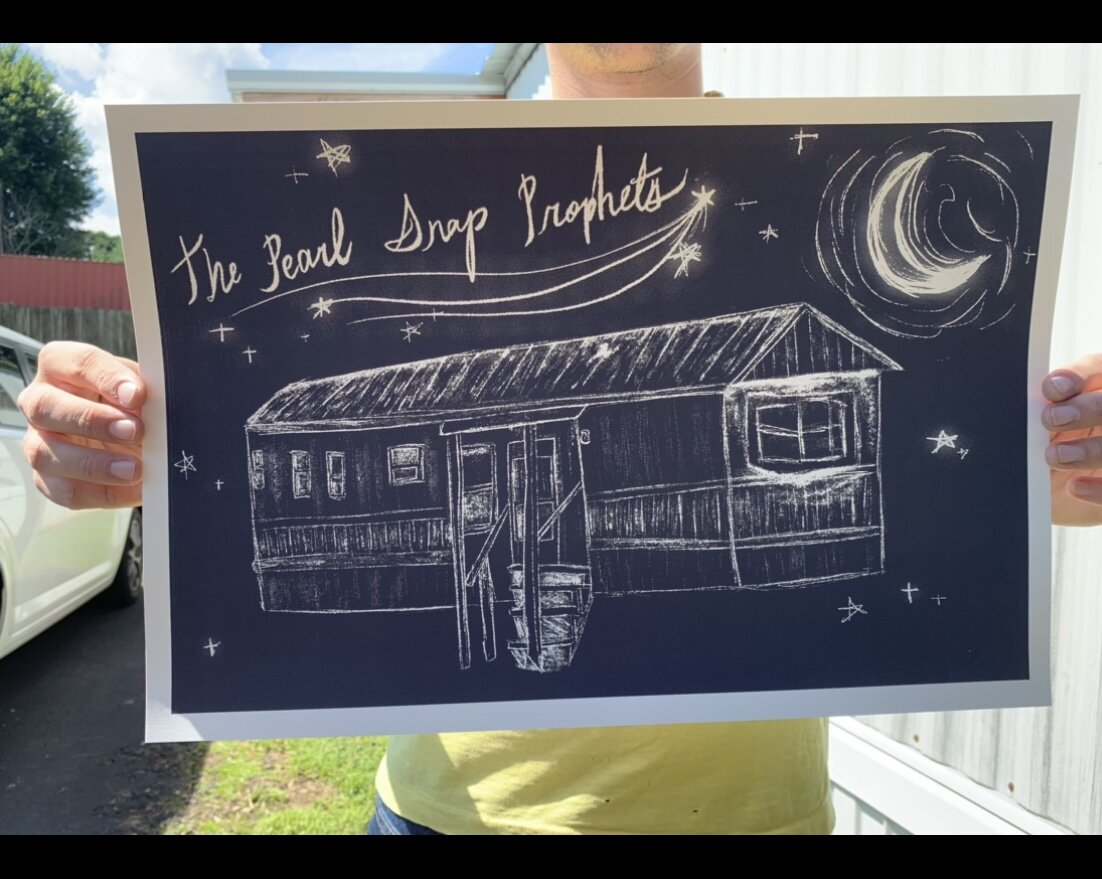 The Pearl Snap Prophets